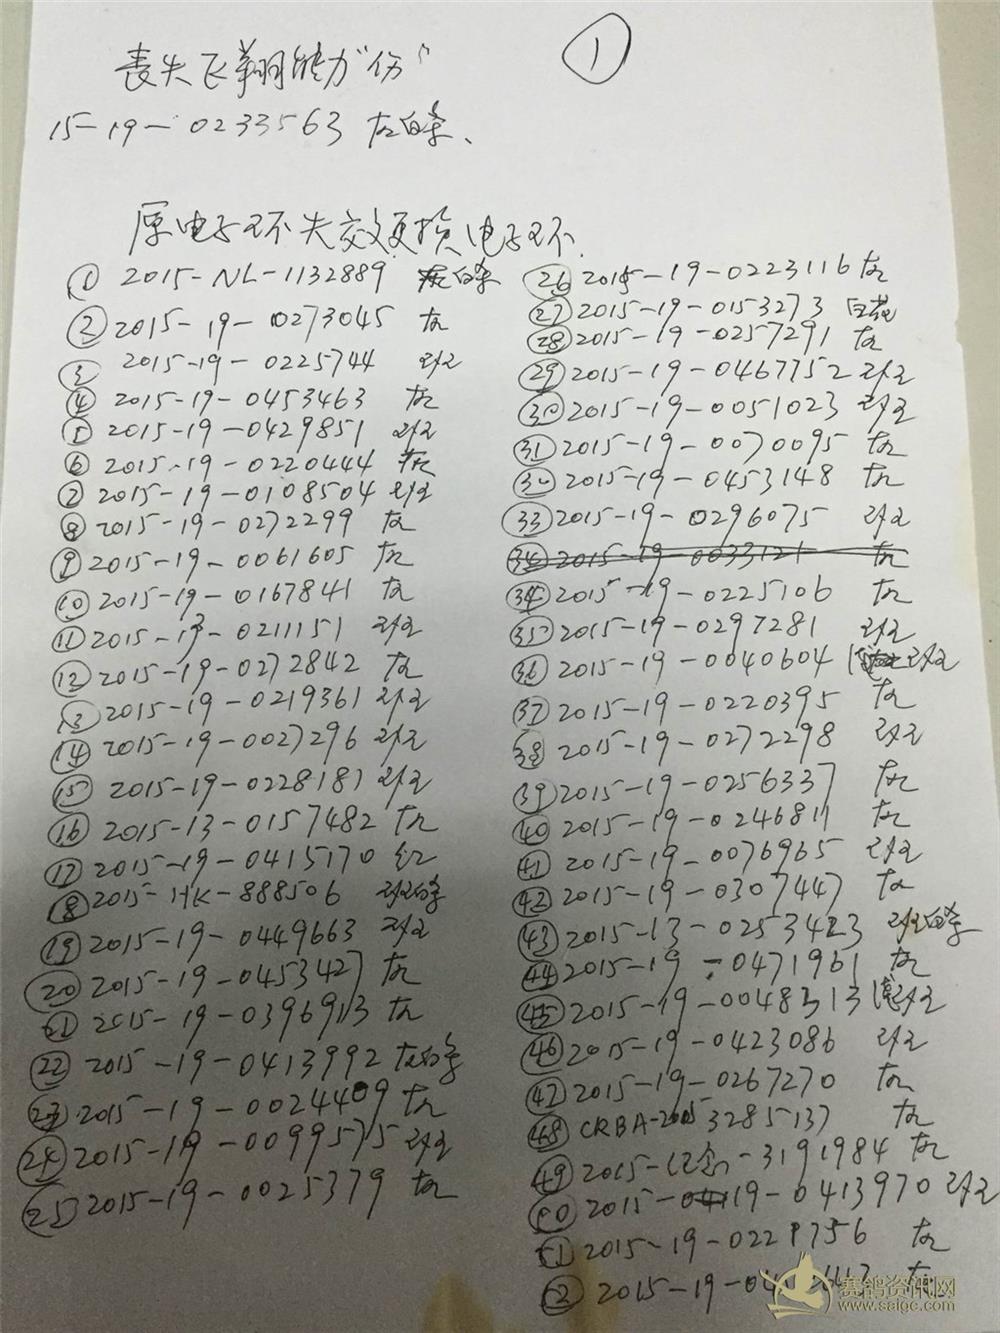 ①
丧失飞翔能力"伤"
15-19-0233563 灰白条、
原电子环失效更换电子环
① 2015-NL-1132889 灰白条
② 2015-19-0273045 灰
③ 2015-19-0225744 雨
④ 2015-19-0453463 灰
⑤ 2015-19-0429851 雨
⑥ 2015-19-0220444 灰
⑦ 2015-19-0108504 雨
⑧ 2015-19-0272299 灰
⑨ 2015-19-0061605 灰
⑩ 2015-19-0167841 灰
⑪ 2015-19-0211151
⑫ 2015-19-0272842 灰
⑬ 2015-19-0219361
⑭ 2015-19-0027296
⑮ 2015-19-0228181
⑯ 2015-13-0157482 灰
⑰ 2015-19-0415170 红
⑱ 2015-HK-888506 白条
⑲ 2015-19-0449663
⑳ 2015-19-0453427 灰
21 2015-19-0396913 灰
22 2015-19-0413992 灰白条
23 2015-19-0024409 灰
24 2015-19-0099575
25 2015-19-0025379 灰
26 2015-19-0223116 灰
27 2015-19-0153273 白花
28 2015-19-0257291 灰
29 2015-19-0467752
30 2015-19-0051023
31 2015-19-0070095 灰
32 2015-19-0453148 灰
33 2015-19-0296075
34 2015-19-0033121 灰
34 2015-19-0225106 灰
35 2015-19-0297281
36 2015-19-0040604
37 2015-19-0220395 灰
38 2015-19-0272298
39 2015-19-0256337 灰
40 2015-19-0246811 灰
41 2015-19-0076965
42 2015-19-0307447 灰
43 2015-13-0253423 白条
44 2015-19-0471961 灰
45 2015-19-0048313
46 2015-19-0423086
47 2015-19-0267270 灰
48 CRBA-2015 3285137 灰
49 2015-纪念-3191984 灰
50 2015-19-0413970
51 2015-19-0221756 灰
52 2015-19-04 灰
赛鸽资讯网
www.saigc.com